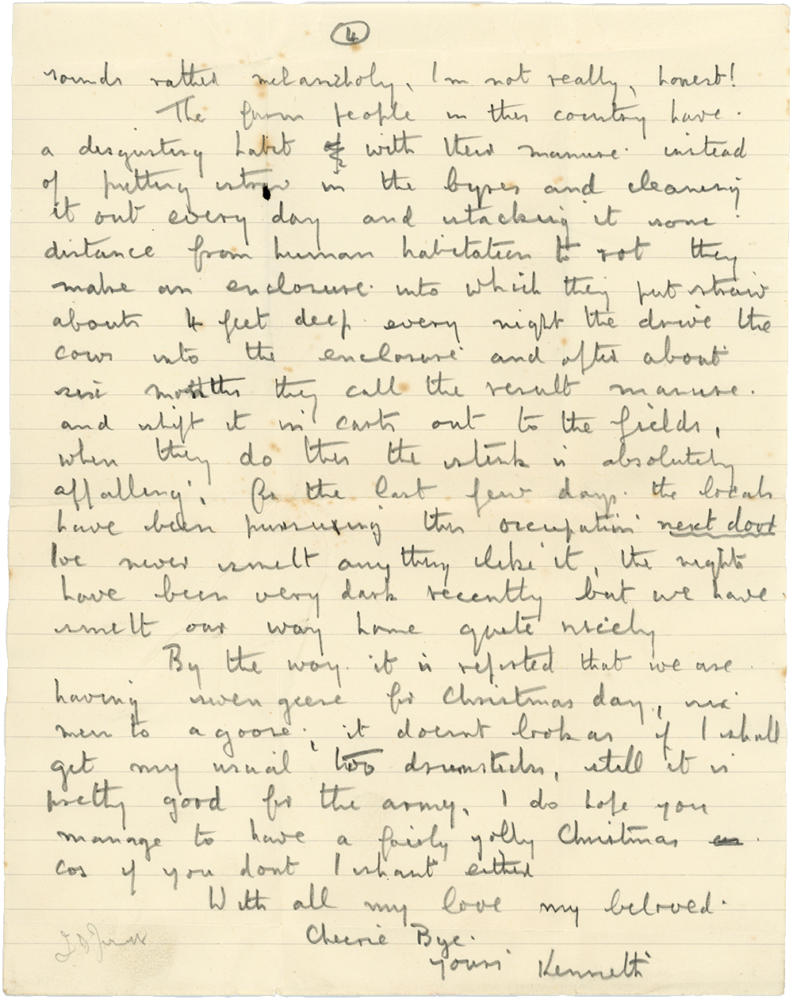 4
sounds rather melancholy, Im not really, honest!
The farm people in this country have
a disgusting habit with their manure instead
of putting straw in the byres and cleaning
it out every day and stacking it some
distance from human habitation to rot they
make an enclosure into which they put straw
about 4 feet deep every night the drive the
cows into the enclosure and after about
six months they call the result manure.
and shift it in carts out to the fields,
when they do this the stink is absolutely
appalling, for the last few days the locals
have been pursuing this occupation next door
Ive never smelt anything like it, the nights
have been very dark recently but we have
smelt our way home quite nicely
By the way it is reported that we are
having seven geese for Christmas day, six
men to a goose, it doesnt look as if I shall
get my usual two drumsticks, still it is
pretty good for the army, I do hope you
manage to have a fairly jolly Christmas
cos if you dont I shant either
With all my love my beloved.
Cheerie Bye.
Yours Kenneth